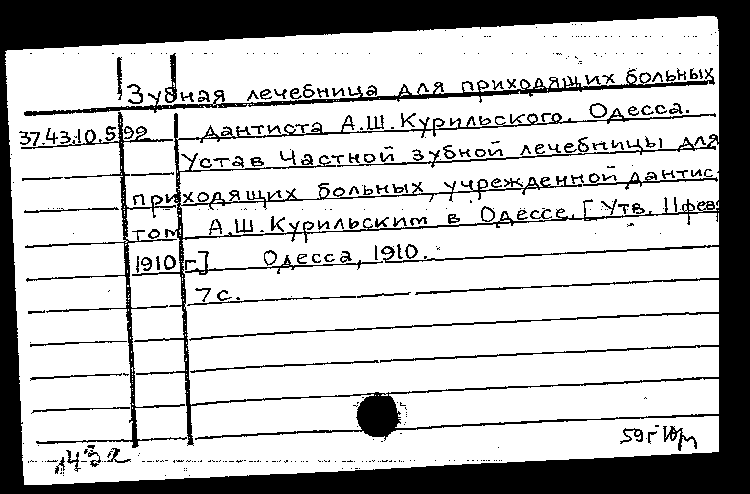 Зубная лечебница для приходящих больных
37.43.10.5.92 дантиста А.Ш.Курильского. Одесса.
Устав Частной зубной лечебницы для
приходящих больных, учрежденной дантис
том А.Ш.Курильским в Одессе. [Утв. 11 фев
1910 г.] Одесса, 1910.
7 с.